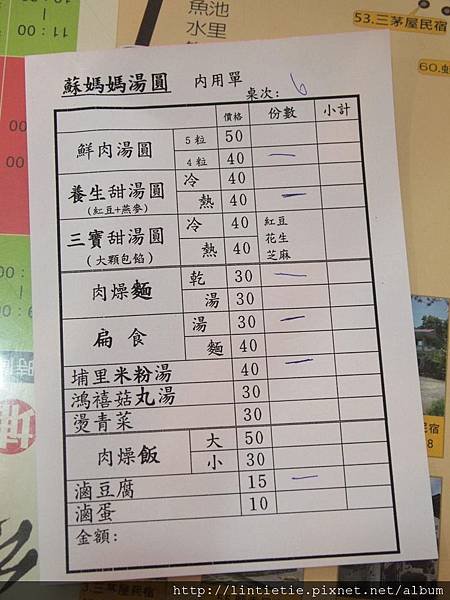 魚池
水里
53.三茅屋民宿
蘇媽媽湯圓 內用單
桌次: 6
價格 份數 小計
鮮肉湯圓 5粒 50
4粒 40 一
養生甜湯圓 (紅豆+燕麥) 冷 40
熱 40 一
三寶甜湯圓 (大顆包餡) 冷 40 紅豆
熱 40 花生
芝麻
肉燥麵 乾 30 一
湯 30
扁食 湯 30 一
麵 40
埔里米粉湯 40 一
鴻禧菇丸湯 30
燙青菜 30
肉燥飯 大 50
小 30
滷豆腐 15 一
滷蛋 10
金額:
http://lintietie.pixnet.net/album